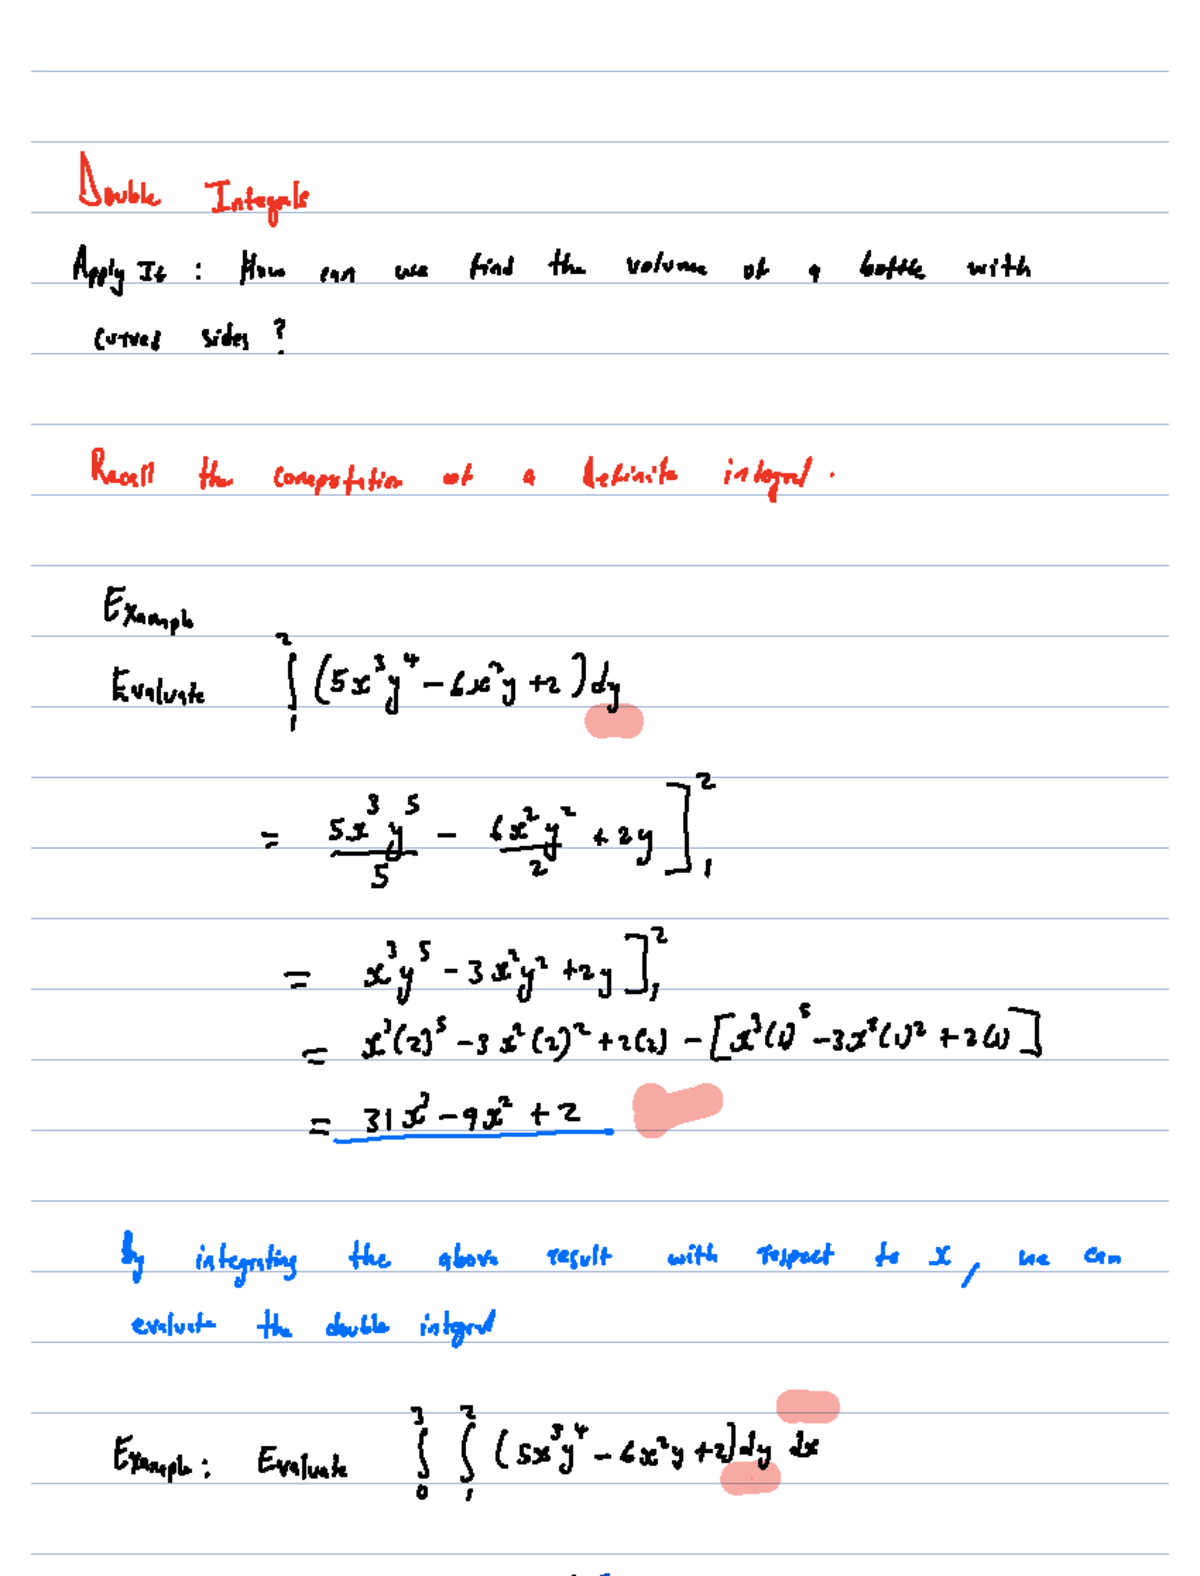 Double Integrals
Apply It : How can we find the volume of a bottle with
curved sides ?
Recall the computation of a definite integral .
Example
Evaluate ∫₁² (5x³y⁴ − 6x²y + 2) dy
= 5x³y⁵/5 − 6x²y²/2 + 2y ]₁²
= x³y⁵ − 3x²y² + 2y ]₁²
= x³(2)⁵ − 3x²(2)² + 2(2) − [x³(1)⁵ − 3x²(1)² + 2(1)]
= 31x³ − 9x² + 2
By integrating the above result with respect to x, we can
evaluate the double integral
Example : Evaluate ∫₀³ ∫₁² (5x³y⁴ − 6x²y + 2) dy dx